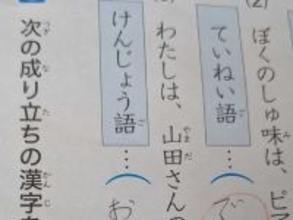 ぼくのしゅ味は、ピア
ていねい語…（で
わたしは、山田さんの
けんじょう語…（お
次の成り立ちの漢字を